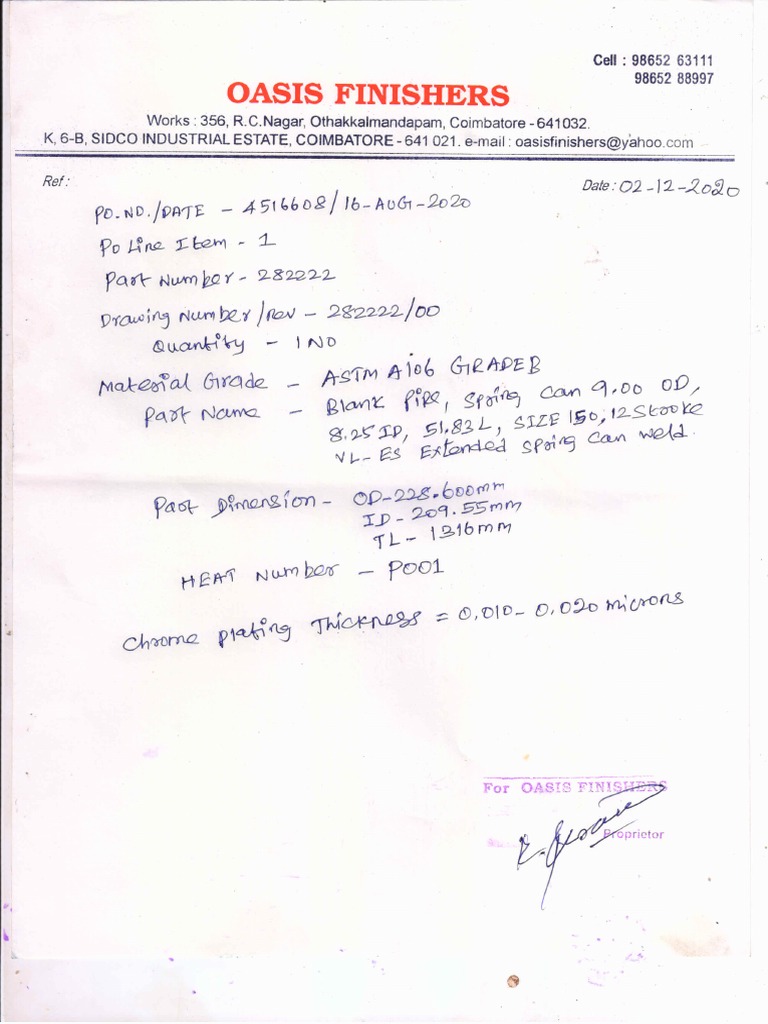 Cell : 98652 63111
98652 88997
OASIS FINISHERS
Works : 356, R.C.Nagar, Othakkalmandapam, Coimbatore - 641032.
K, 6-B, SIDCO INDUSTRIAL ESTATE, COIMBATORE - 641 021. e-mail : oasisfinishers@yahoo.com
Ref :
Date : 02-12-2020
PO.NO./DATE - 4516608/16-AUG-2020
Po Line Item - 1
Part Number - 282222
Drawing Number/Rev - 282222/00
Quantity - 1 NO
Material Grade - ASTM A106 GRADE B
Part Name - Blank Pipe, Spring Can 9.00 OD,
8.25 ID, 51.83 L, SIZE 150, 12 Stroke
VL-ES Extended Spring Can Weld.
Part Dimension - OD-228.600mm
ID-209.55mm
TL-1316mm
HEAT Number - P001
Chrome Plating Thickness = 0.010-0.020 microns
For OASIS FINISHERS
Proprietor